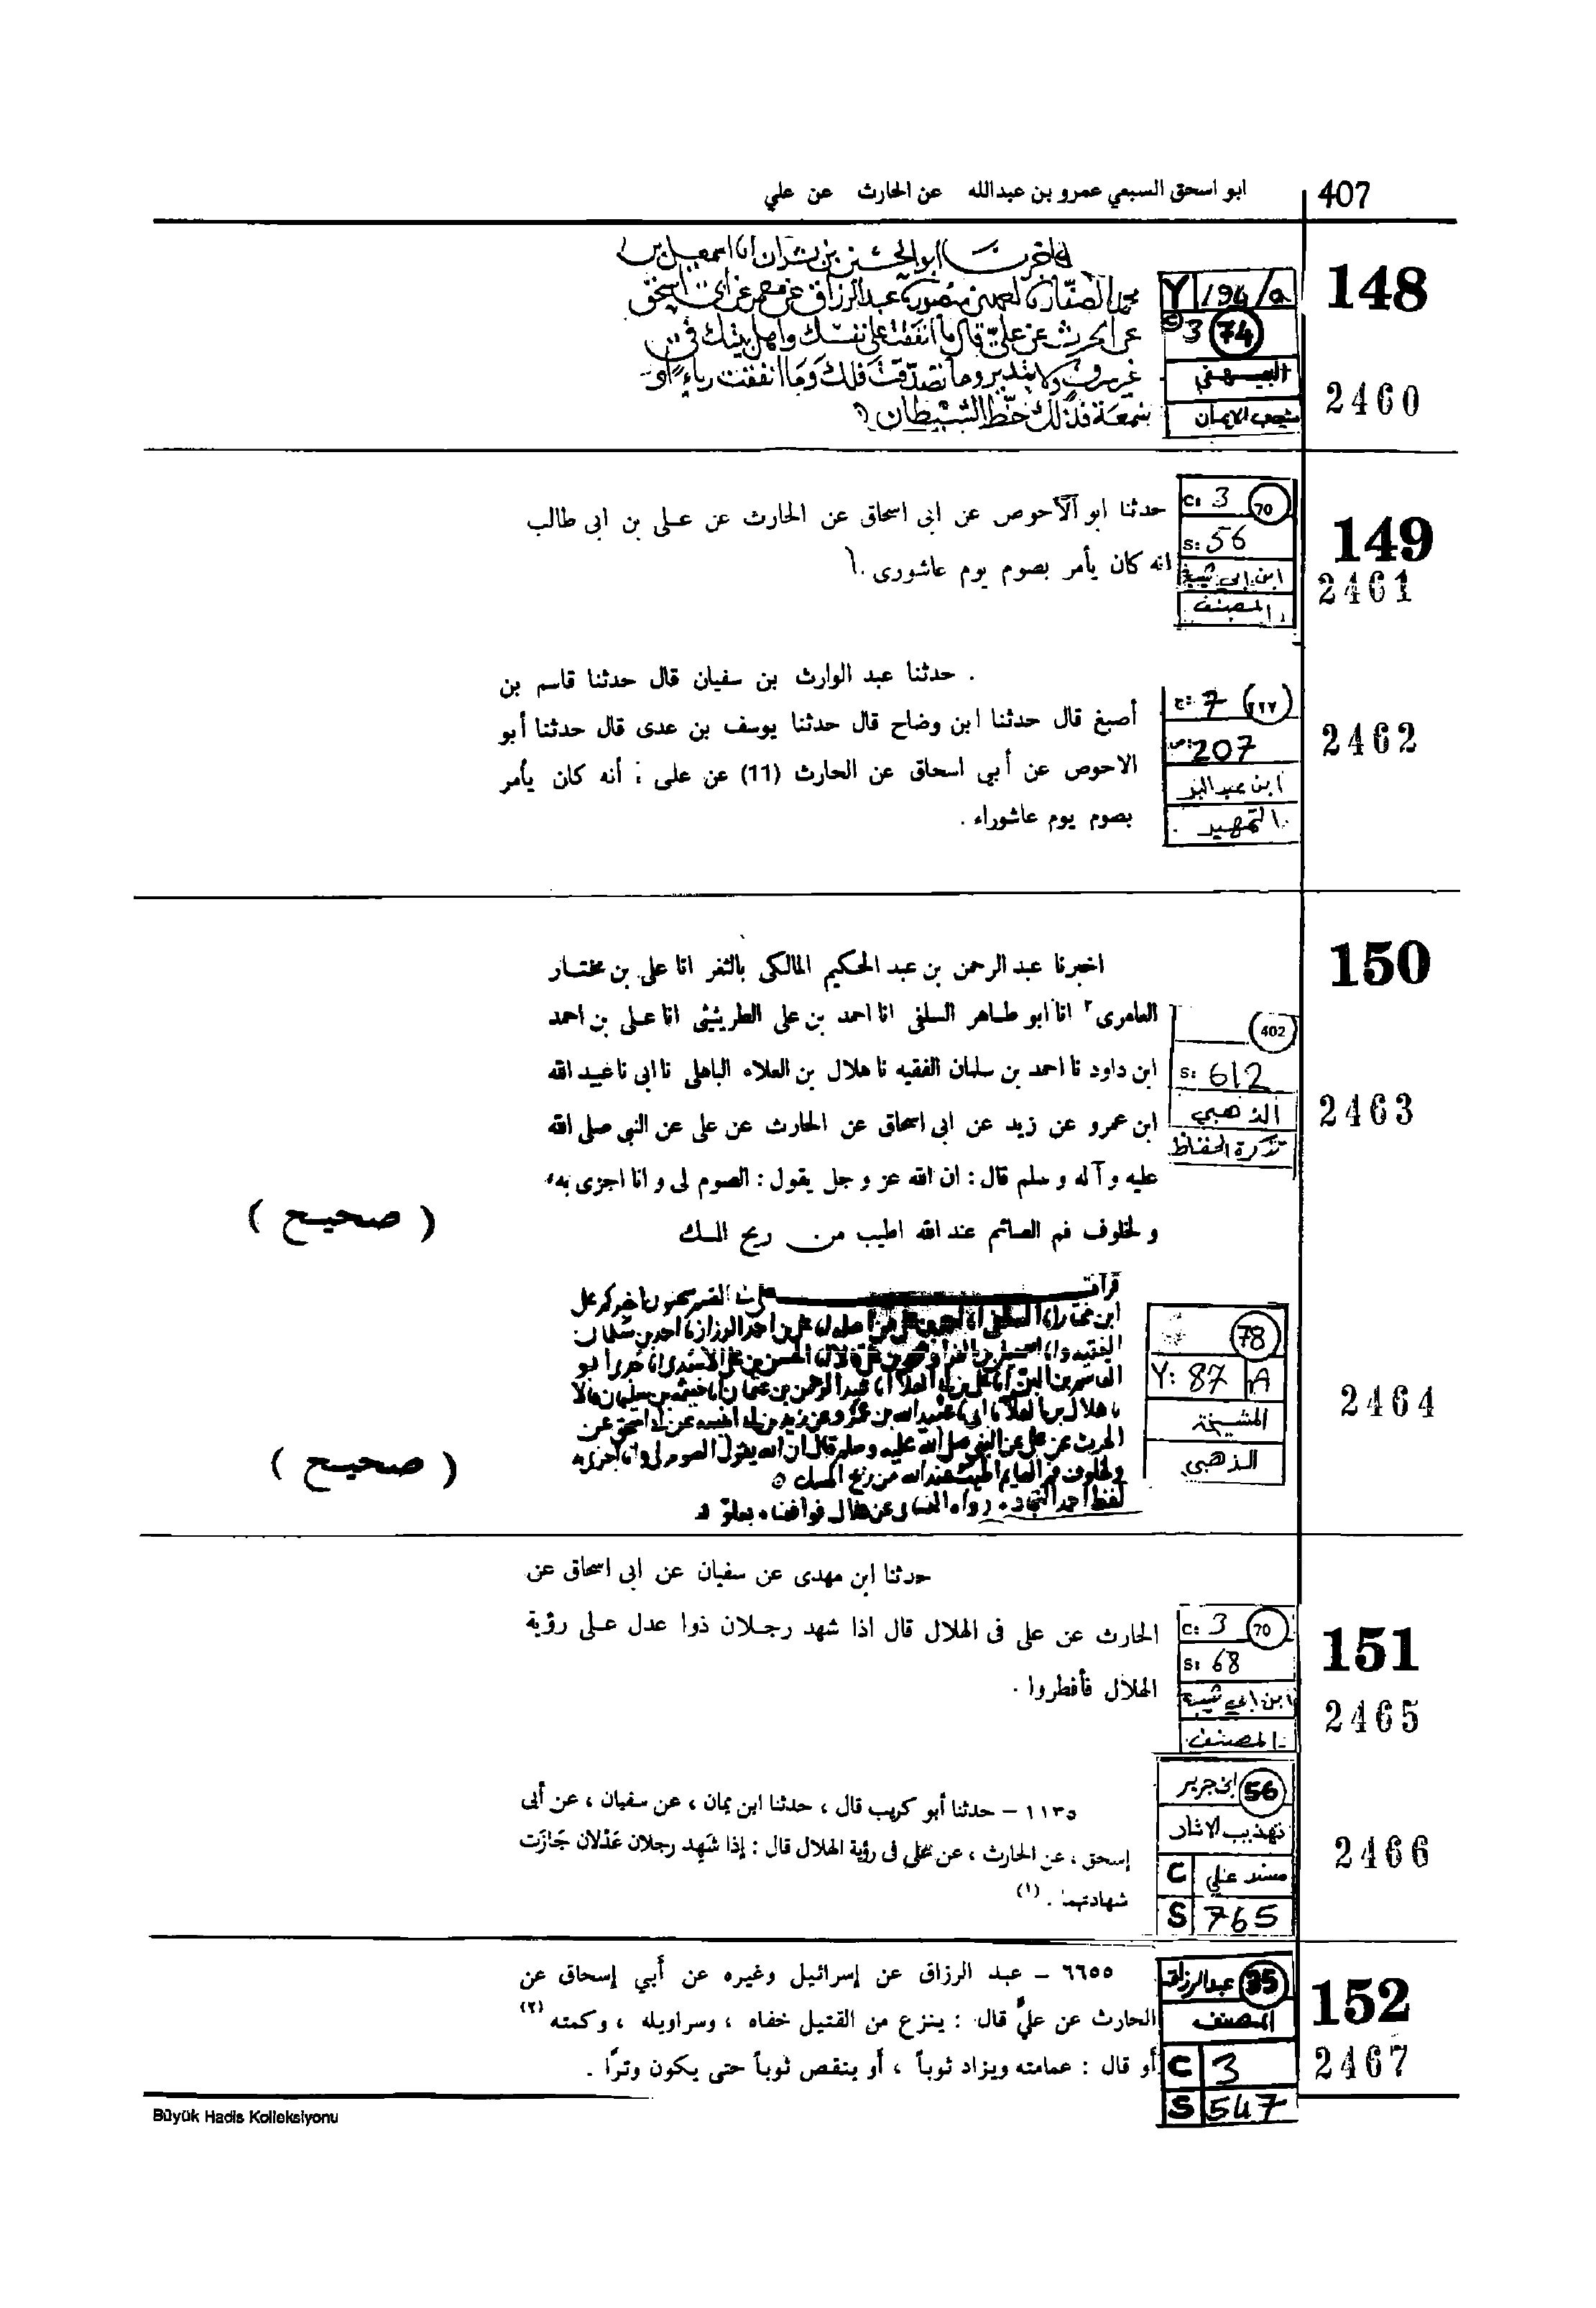 407
ابو اسحق السبعي عمرو بن عبدالله عن الحارث عن علي
148
2460
Y 194/a
C 3 74
البيهقي
شعب الايمان
اخبرنا ابو الحسين بن بشران انا اسمعيل بن
محمد الصفار نا احمد بن منصور نا عبد الرزاق عن معمر عن ابي اسحق
عن الحرث عن علي قال ما انفقت على نفسك واهل بيتك في
غير سرف ولا تبذير وما تصدقت فلك وما انفقت رياء او
سمعة فذلك حظ الشيطان
149
2461
C: 3 70
S: 56
ابن ابي شيبة
المصنف
حدثنا ابو الأحوص عن ابى اسحاق عن الحارث عن عـلى بن ابى طالب
انه كان يأمر بصوم يوم عاشورى .
2462
ج: 7 (٢٢٧)
ص: 207
ابن عبد البر
التمهيد
. حدثنا عبد الوارث بن سفيان قال حدثنا قاسم بن
أصبغ قال حدثنا ابن وضاح قال حدثنا يوسف بن عدى قال حدثنا أبو
الاحوص عن أبي اسحاق عن الحارث (11) عن على : أنه كان يأمر
بصوم يوم عاشوراء .
150
2463
402
S: 612
الذهبي
تذكرة الحفاظ
اخبرنا عبد الرحمن بن عبد الحكيم المالكى بالثغر انا على بن مختـار
العامرى ٢ انا ابو طـاهر السلفى انا احمد بن على الطريثيثى انا عـلى بن احمد
ابن داود نا احمد بن سلمان الفقيه نا هلال بن العلاء الباهلى نا ابى نا عبيد الله
ابن عمرو عن زيد عن ابى اسحاق عن الحارث عن على عن النبى صلى الله
عليه و آله و سلم قال : ان الله عز و جل يقول : الصوم لى و انا اجزى به ،
و لخلوف فم الصائم عند الله اطيب من ريح المسك
( صحيح )
2464
78
Y: 87 A
المشيخة
الذهبي
قرأت
الحرث عن علي عن النبي صلى الله عليه وسلم قال ان الله يقول الصوم لي وانا اجزي به
ولخلوف فم الصايم اطيب عند الله من ريح المسك
( صحيح )
151
2465
C: 3 70
S: 68
ابن ابي شيبة
المصنف
حدثنا ابن مهدى عن سفيان عن ابى اسحاق عن
الحارث عن على فى الهلال قال اذا شهد رجـلان ذوا عدل عـلى رؤية
الهلال فأفطروا .
2466
ابن جرير 56
تهذيب الاثار
مسند علي C
S 765
١١٣٥ – حدثنا أبو كريب قال ، حدثنا ابن يمان ، عن سفيان ، عن أبى
إسحق ، عن الحارث ، عن علي فى رؤية الهلال قال : إذا شَهِد رجلان عَدْلان جَازَت
شهادتهما . (١)
152
2467
عبدالرزاق 35
المصنف
C 3
S 547
٦٦٥٥ – عبد الرزاق عن إسرائيل وغيره عن أبي إسحاق عن
الحارث عن عليٍّ قال : ينزع من القتيل خفاه ، وسراويله ، وكمته (٢)
أو قال : عمامته ويزاد ثوباً ، أو ينقص ثوباً حتى يكون وترًا .
Büyük Hadis Kolleksiyonu